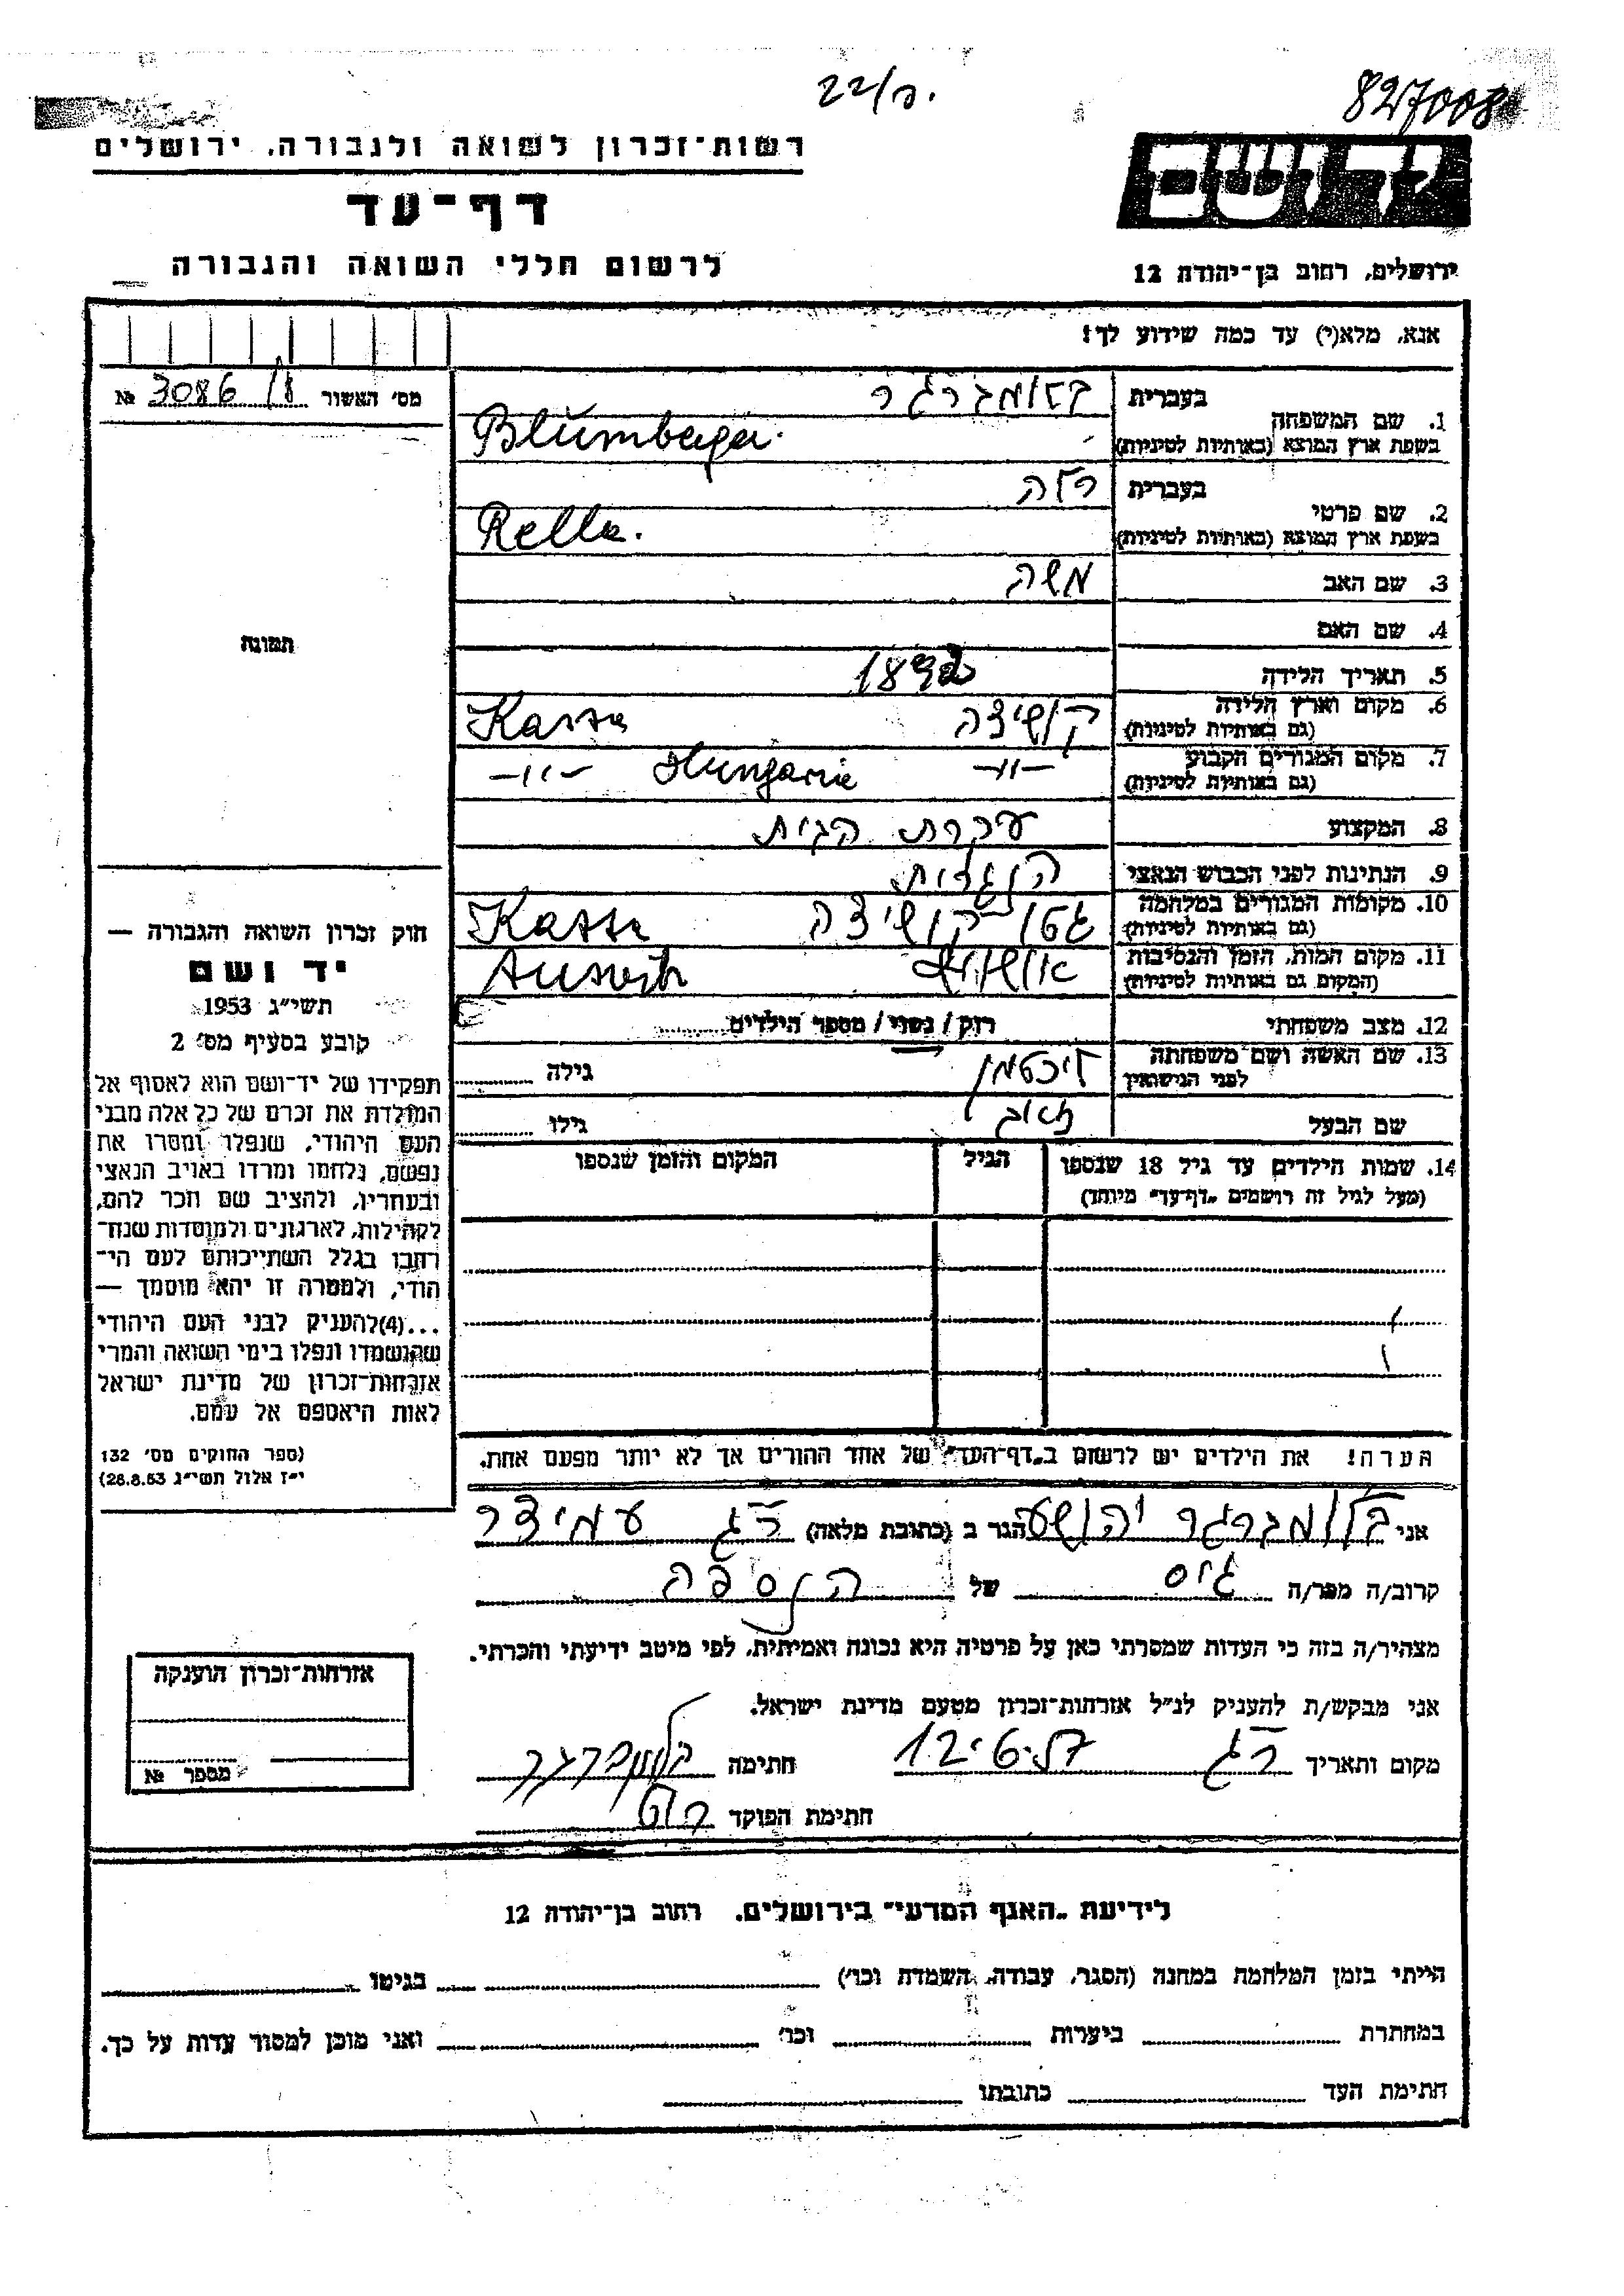 22/ס.
827008
רשות-זכרון לשואה ולגבורה, ירושלים
יד ושם
דף-עד
לרשום חללי השואה והגבורה
ירושלים, רחוב בן-יהודה 12
אנא, מלא(י) עד כמה שידוע לך!
מס' האשור 3086/8 №
תמונה
1. שם המשפחה בעברית בלומברגר
בשפת ארץ המוצא (באותיות לטיניות) Blümberger.
2. שם פרטי בעברית רלה
בשפת ארץ המוצא (באותיות לטיניות) Rella.
3. שם האב משה
4. שם האם
5. תאריך הלידה
6. מקום וארץ הלידה קושיצה Kassa
(גם באותיות לטיניות)
7. מקום המגורים הקבוע -"- Hungarie -"-
(גם באותיות לטיניות)
8. המקצוע עקרת הבית
9. הנתינות לפני הכבוש הנאצי הונגרית
10. מקומות המגורים במלחמה גטו קושיצה Kassa
(גם באותיות לטיניות)
11. מקום המות, הזמן והנסיבות אושויץ
(המקום גם באותיות לטיניות)
12. מצב משפחתי רווק / נשוי / מספר הילדים
13. שם האשה ושם משפחתה ליכטמן גילה
לפני הנישואין
שם הבעל זאב גילו
14. שמות הילדים עד גיל 18 שנספו הגיל המקום והזמן שנספו
(מעל לגיל זה רושמים "דף-עד" מיוחד)
הערה! את הילדים יש לרשום ב"דף-העד" של אחד ההורים אך לא יותר מפעם אחת.
חוק זכרון השואה והגבורה —
יד ושם
תשי"ג 1953
קובע בסעיף מס' 2
תפקידו של יד-ושם הוא לאסוף אל
המולדת את זכרם של כל אלה מבני
העם היהודי, שנפלו ומסרו את
נפשם, נלחמו ומרדו באויב הנאצי
ובעוזריו, ולהציב שם וזכר להם,
לקהילות, לארגונים ולמוסדות שנח-
רבו בגלל השתייכותם לעם הי-
הודי, ולמטרה זו יהא מוסמך —
...(4)להעניק לבני העם היהודי
שהושמדו ונפלו בימי השואה והמרי
אזרחות-זכרון של מדינת ישראל
לאות היאספם אל עמם.
(ספר החוקים מס' 132
י"ז אלול תשי"ג 28.8.53)
אני בלומברגר יהושע הגר ב (כתובת מלאה) ר"ג עמידר
קרוב/ה מכר/ה גיס של הנספה
מצהיר/ה בזה כי העדות שמסרתי כאן על פרטיה היא נכונה ואמיתית, לפי מיטב ידיעתי והכרתי.
אני מבקש/ת להעניק לנ"ל אזרחות-זכרון מטעם מדינת ישראל.
מקום ותאריך ר"ג 12.6.57 חתימה בלומברגר
חתימת הפוקד
אזרחות-זכרון הוענקה
מספר №
לידיעת "האגף המדעי" בירושלים, רחוב בן-יהודה 12
הייתי בזמן המלחמה במחנה (הסגר, עבודה, השמדה וכו') בגיטו
במחתרת ביערות וכו' ואני מוכן למסור עדות על כך.
חתימת העד כתובתו